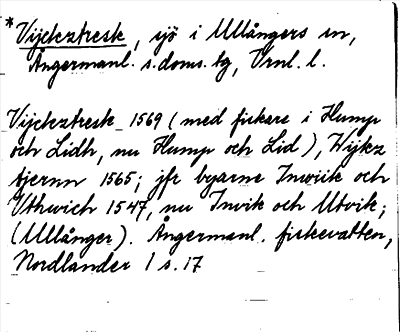 *Vijckztresk, sjö i Ullångers sn,
Ångermanl. s.doms. lg, Vrnl. l.
Vijckztresk 1569 (med fiskare i Hump
och Lidh, nu Hump och Lid), Wijkz
tjernn 1565; jfr byarne Inwiik och
Vthwich 1547, nu Invik och Utvik;
(Ullånger). Ångermanl. fiskevatten,
Nordlander 1 s. 17